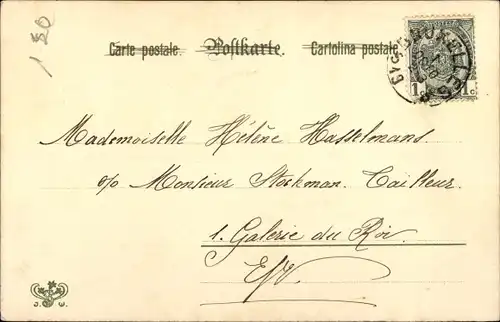 150
Carte postale. Postkarte. Cartolina postale
BRUXELLES
1c 1c
Mademoiselle Hélène Hasselmans.
c/o Monsieur Stockman. Tailleur.
1. Galerie du Roi.
E/V.
J. W.